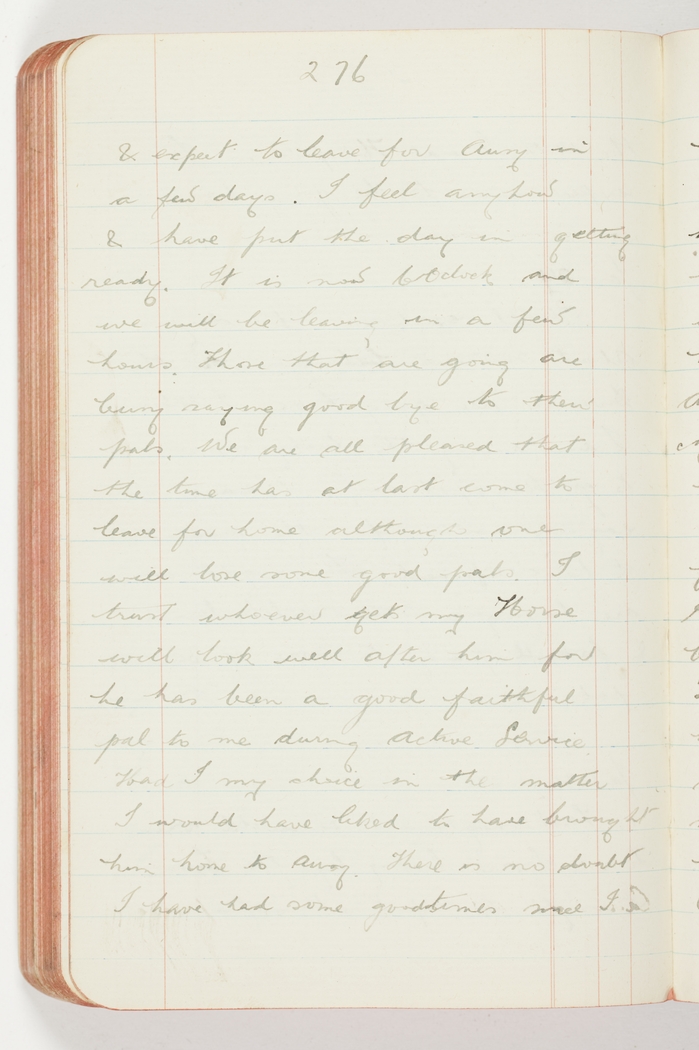 276
& expect to leave for Aussy in
a few days. I feel anyhow
& have put the day in getting
ready. It is now 6 Oclock and
we will be leaving in a few
hours. Those that are going are
busy saying good bye to their
pals. We are all pleased that
the time has at last come to
leave for home although one
will lose some good pals. I
trust whoever gets my Horse
will look well after him for
he has been a good faithful
pal to me during Active Service
Had I my choice in the matter
I would have liked to have brought
him home to Aussy. There is no doubt
I have had some good times since I